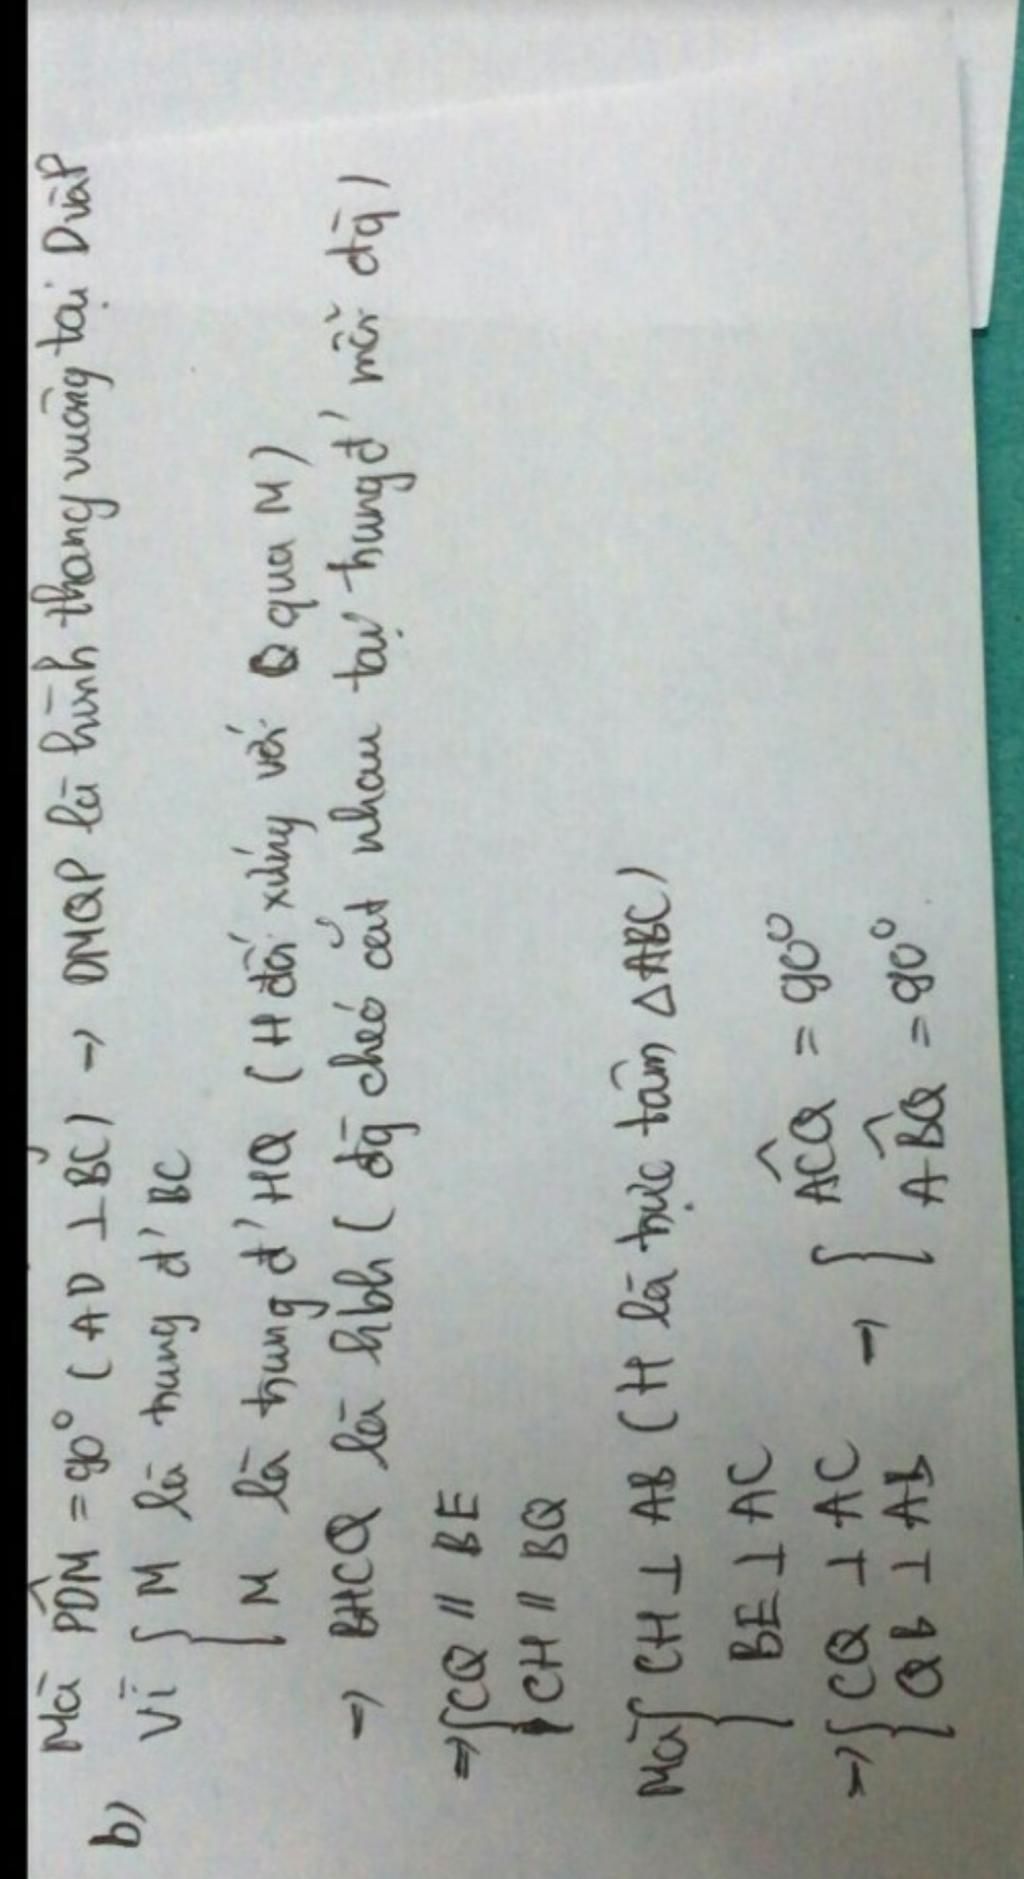 Mà PDM = 90° (AD ⊥ BC) → DMQP là hình thang vuông tại D và P
b) Vì { M là trung đ' BC
{ M là trung đ' HQ (H đối xứng với Q qua M)
→ BHCQ là hbh (đg chéo cắt nhau tại trung đ' mỗi đg)
⇒ { CQ // BE
{ CH // BQ
Mà { CH ⊥ AB (H là trực tâm △ABC)
{ BE ⊥ AC
→ { CQ ⊥ AC → { ACQ = 90°
{ QB ⊥ AB { ABQ = 90°